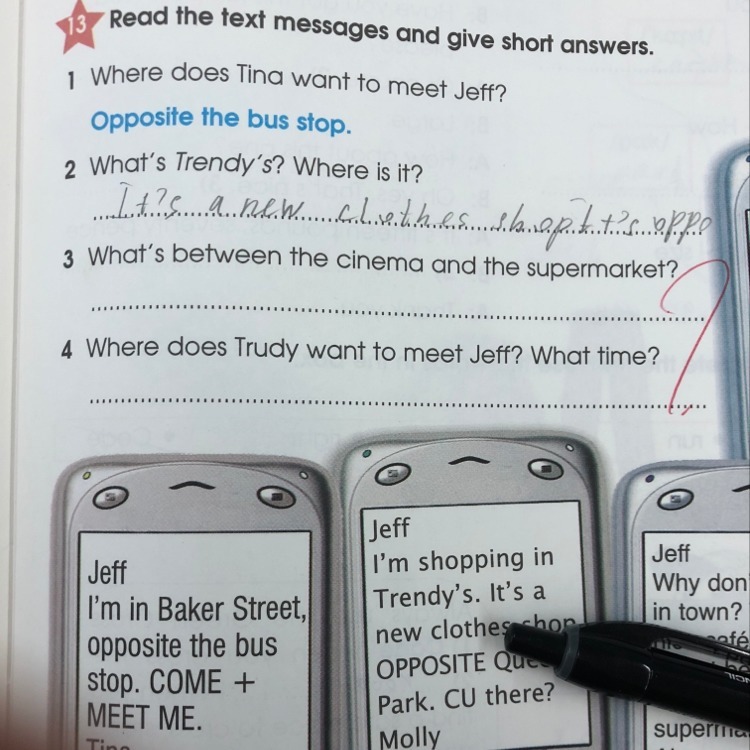 13 Read the text messages and give short answers.
1 Where does Tina want to meet Jeff?
Opposite the bus stop.
2 What's Trendy's? Where is it?
It's a new clothes shop It's oppo
3 What's between the cinema and the supermarket?
4 Where does Trudy want to meet Jeff? What time?
Jeff
I'm in Baker Street,
opposite the bus
stop. COME +
MEET ME.
Tina
Jeff
I'm shopping in
Trendy's. It's a
new clothes shop
OPPOSITE
Park. CU there?
Molly
Jeff
Why don
in town?
superma